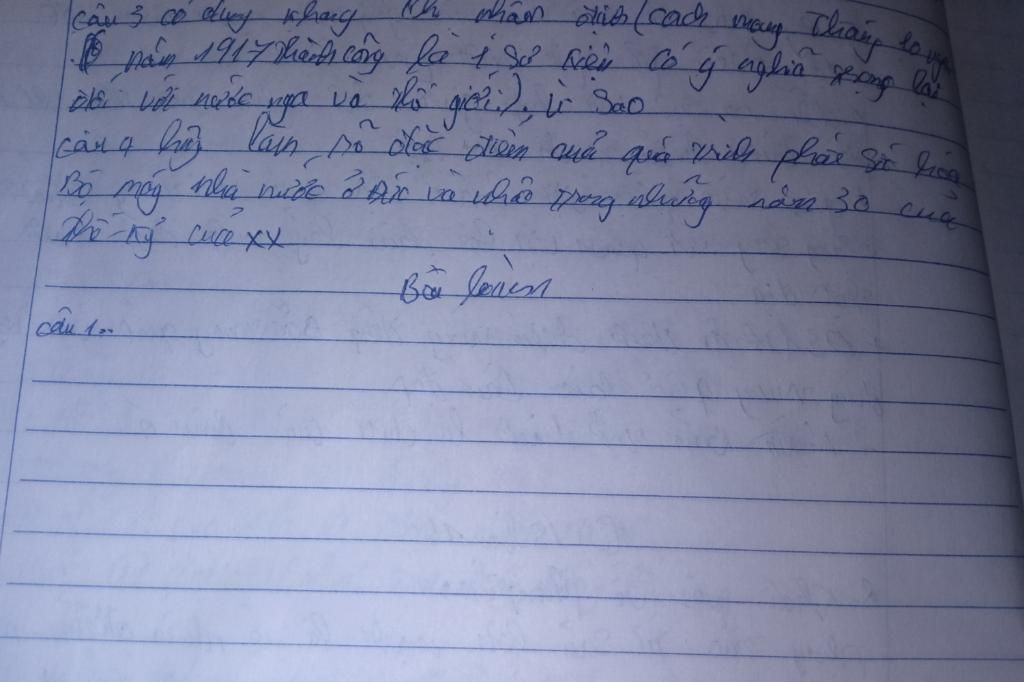 câu 3 có đúng không khi nhận định (cách mạng Tháng 10 nga
năm 1917 thành công là 1 sự kiện có ý nghĩa trọng lại
đối với nước nga và thế giới), vì sao
câu 4 hãy làm rõ đặc điểm quả quá trình phát xít hóa
Bộ máy nhà nước ở đức và nhật trong những năm 30 của
thế kỷ của XX
Bài làm
câu 1..